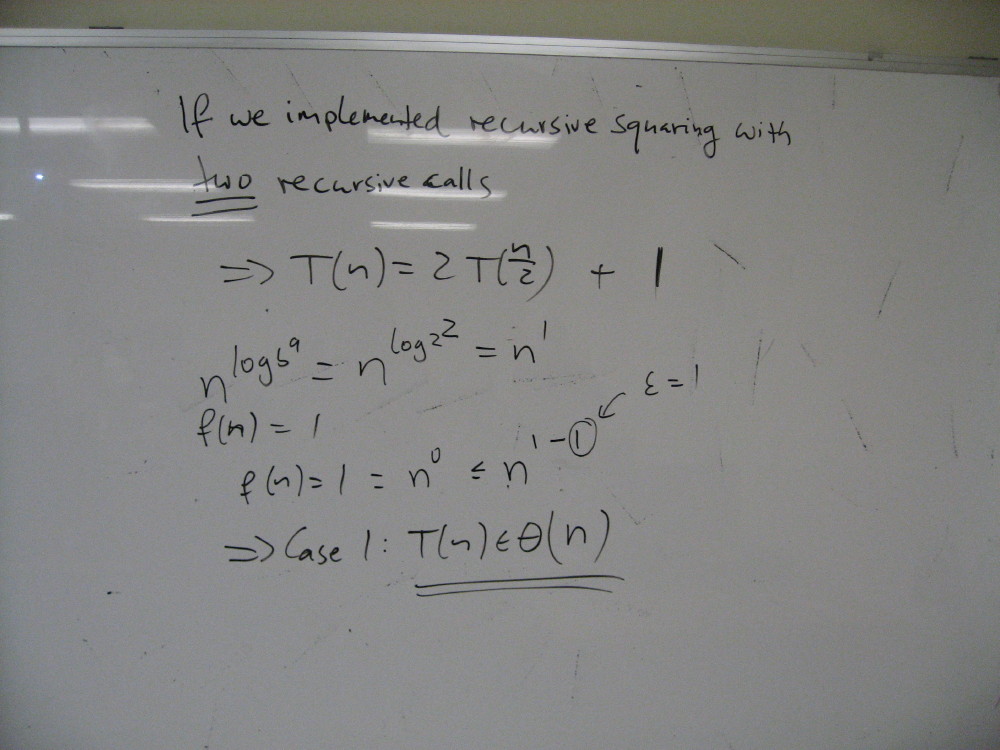 If we implemented recursive squaring with
two recursive calls
=> T(n) = 2 T(n/2) + 1
n^log_b a = n^log_2 2 = n^1
ε = 1
f(n) = 1
f(n) = 1 = n^0 ≤ n^1-①
=> Case 1: T(n) ∈ Θ(n)